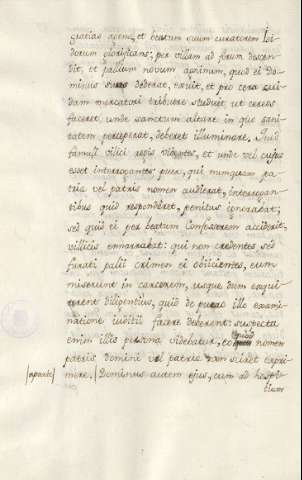 gratias agens, et beatum suum curatorem Isi-
dorum glorificans; per villam ad forum descen-
dit, et pallium novum optimum, quod ei Do-
minus suus dederat, exuit, et pro cera qui-
dam mercatori tribuere studuit, ut cereos
faceret, unde sanctum altare in quo sani-
tatem perceperat, deberet illuminare. Quid
famuli villici regis videntes, et unde vel cujus
esset interrogantes puer, qui nunquam pa-
tria vel patris nomen audierat, interrogan-
tibus quid responderet, penitus ignorabat;
sed quid ei per beatum Confessorem acciderit,
villicis ennarrabat: qui non credentes sed
furati palii crimen ei obiicientes, eum
miserunt in carcerem, usque dum exqui-
rerent diligentius, quid de puero illo exami-
natione iudicii facere deberent: suspecta
enim illis persona videbatur, eo quod nomen
patris domini vel patrie non sciret expri-
mere. / Dominus autem ejus, cum ad hospi-
/aparte/
tium